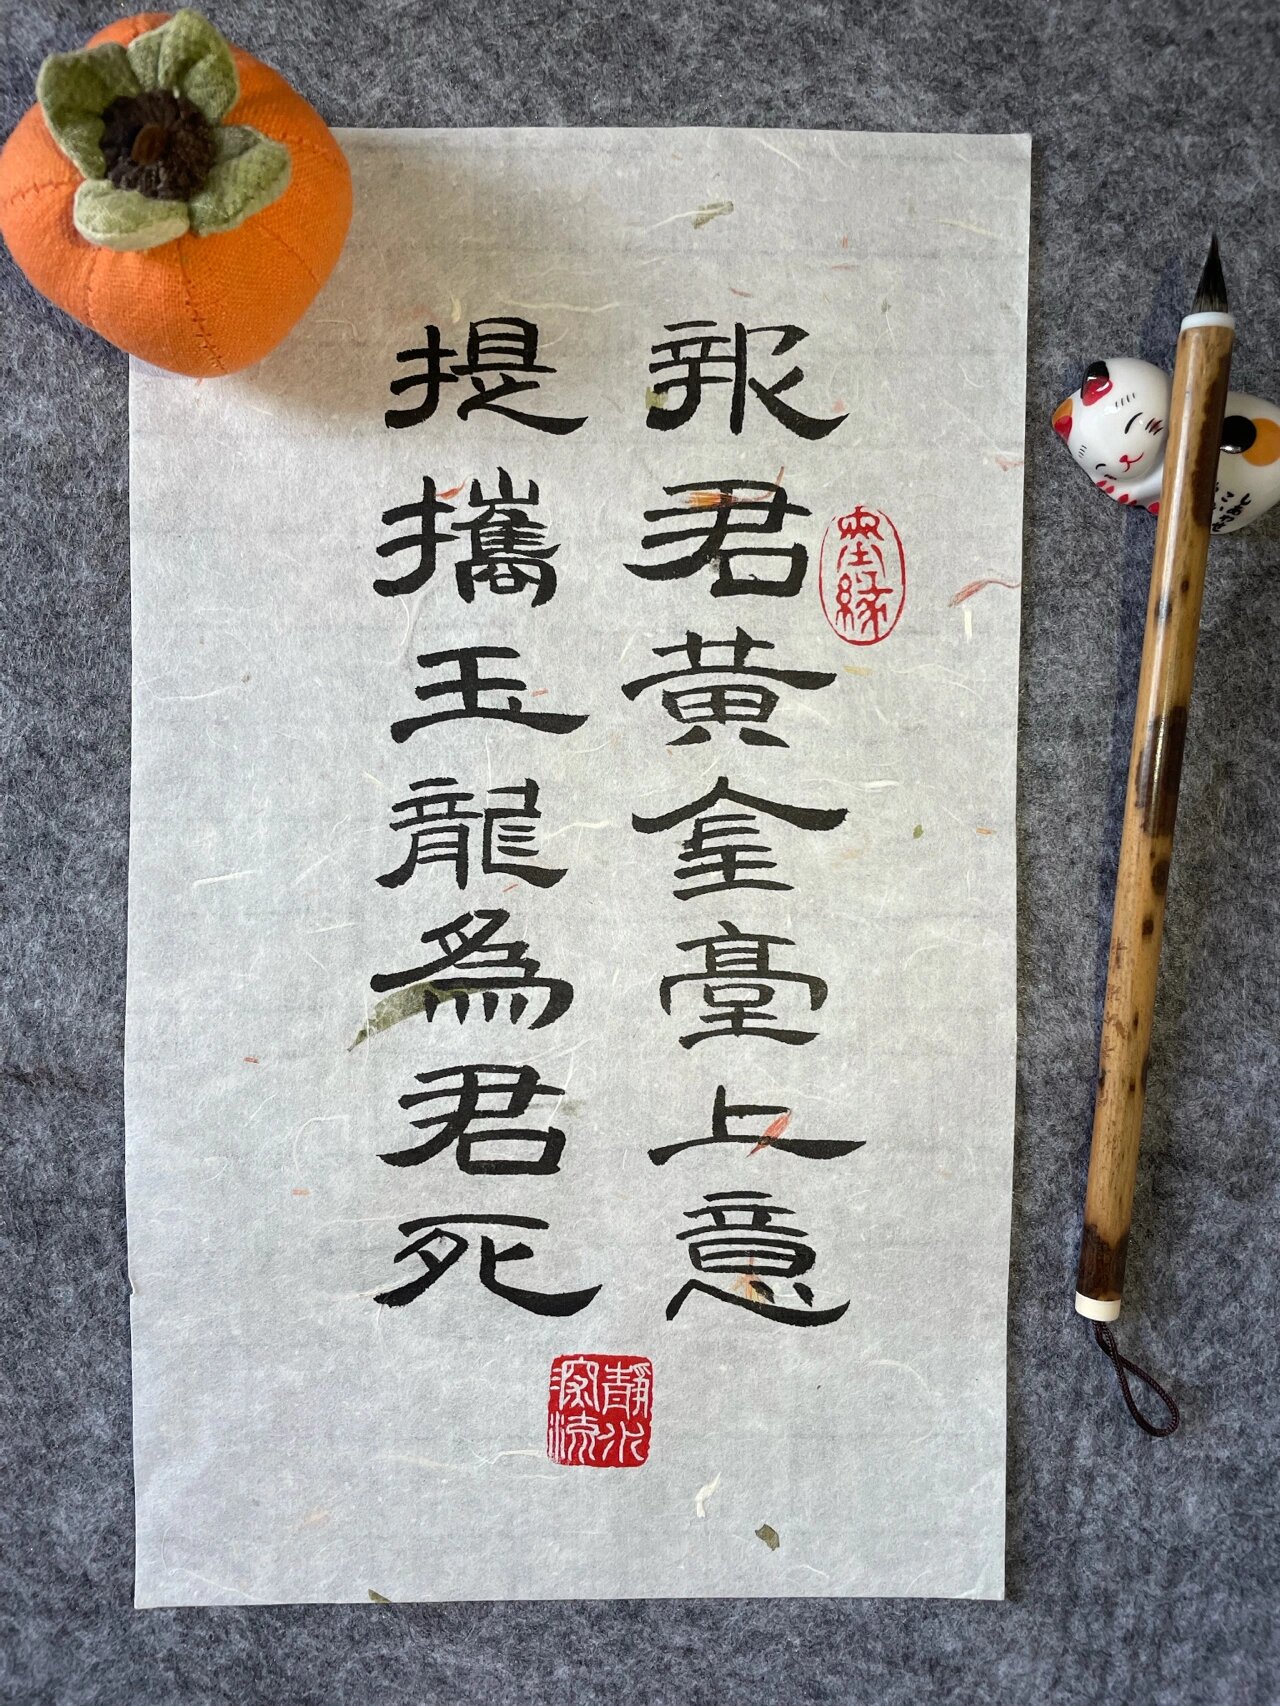 報君黃金臺上意
提攜玉龍為君死
墨緣
靜水深流